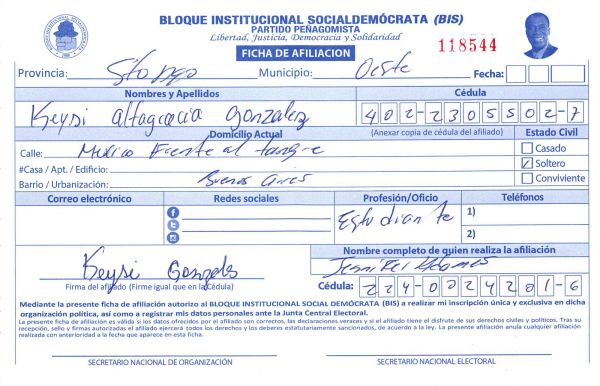 BLOQUE INSTITUCIONAL SOCIALDEMÓCRATA (BIS)
PARTIDO PEÑAGOMISTA
Libertad, Justicia, Democracia y Solidaridad
FICHA DE AFILIACION
118544
Provincia: Stongo Municipio: Oeste Fecha:
Nombres y Apellidos Cédula
Keysi altagracia Gonzalez 402-2305502-7
Domicilio Actual (Anexar copia de cédula del afiliado) Estado Civil
Calle: Mexico Frente al tangre Casado
#Casa / Apt. / Edificio: Soltero
Barrio / Urbanización: Buenos aires Conviviente
Correo electrónico Redes sociales Profesión/Oficio Teléfonos
Estudiante 1)
2)
Nombre completo de quien realiza la afiliación
Keysi Gonzales Jennifer
Firma del afiliado (Firme igual que en la Cédula) Cédula: 224-0024201-6
Mediante la presente ficha de afiliación autorizo al BLOQUE INSTITUCIONAL SOCIAL DEMÓCRATA (BIS) a realizar mi inscripción única y exclusiva en dicha
organización política, así como a registrar mis datos personales ante la Junta Central Electoral.
La presente ficha de afiliación es válida si los datos ofrecidos por el afiliado son correctos, las declaraciones veraces y si el afiliado tiene el disfrute de sus derechos civiles y políticos. Tras su
recepción, sello y firmas autorizadas el afiliado ejercerá todos los derechos y los deberes estatutariamente sancionados, de acuerdo a la ley. La presente afiliación anula cualquier afiliación
realizada con anterioridad a la fecha que aparece en esta ficha.
SECRETARIO NACIONAL DE ORGANIZACIÓN SECRETARIO NACIONAL ELECTORAL